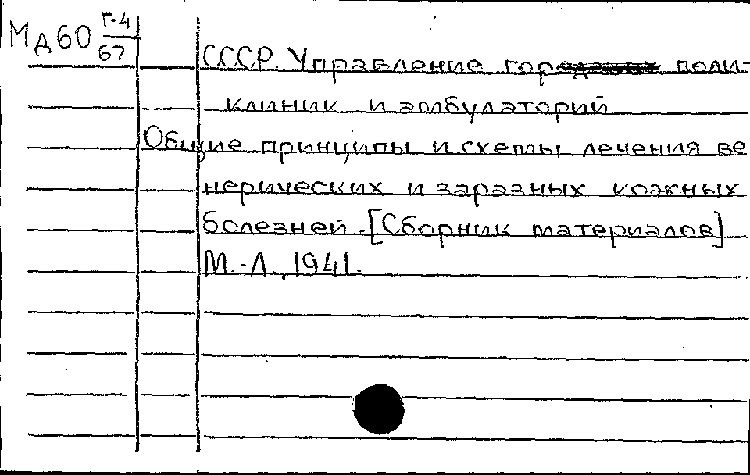 Мд60 Г-4
67
СССР. Управление гор поли-
клиник и амбулаторий
Общие принципы и схемы лечения ве
нерических и заразных кожных
болезней. [Сборник материалов]
М.-Л., 1941.